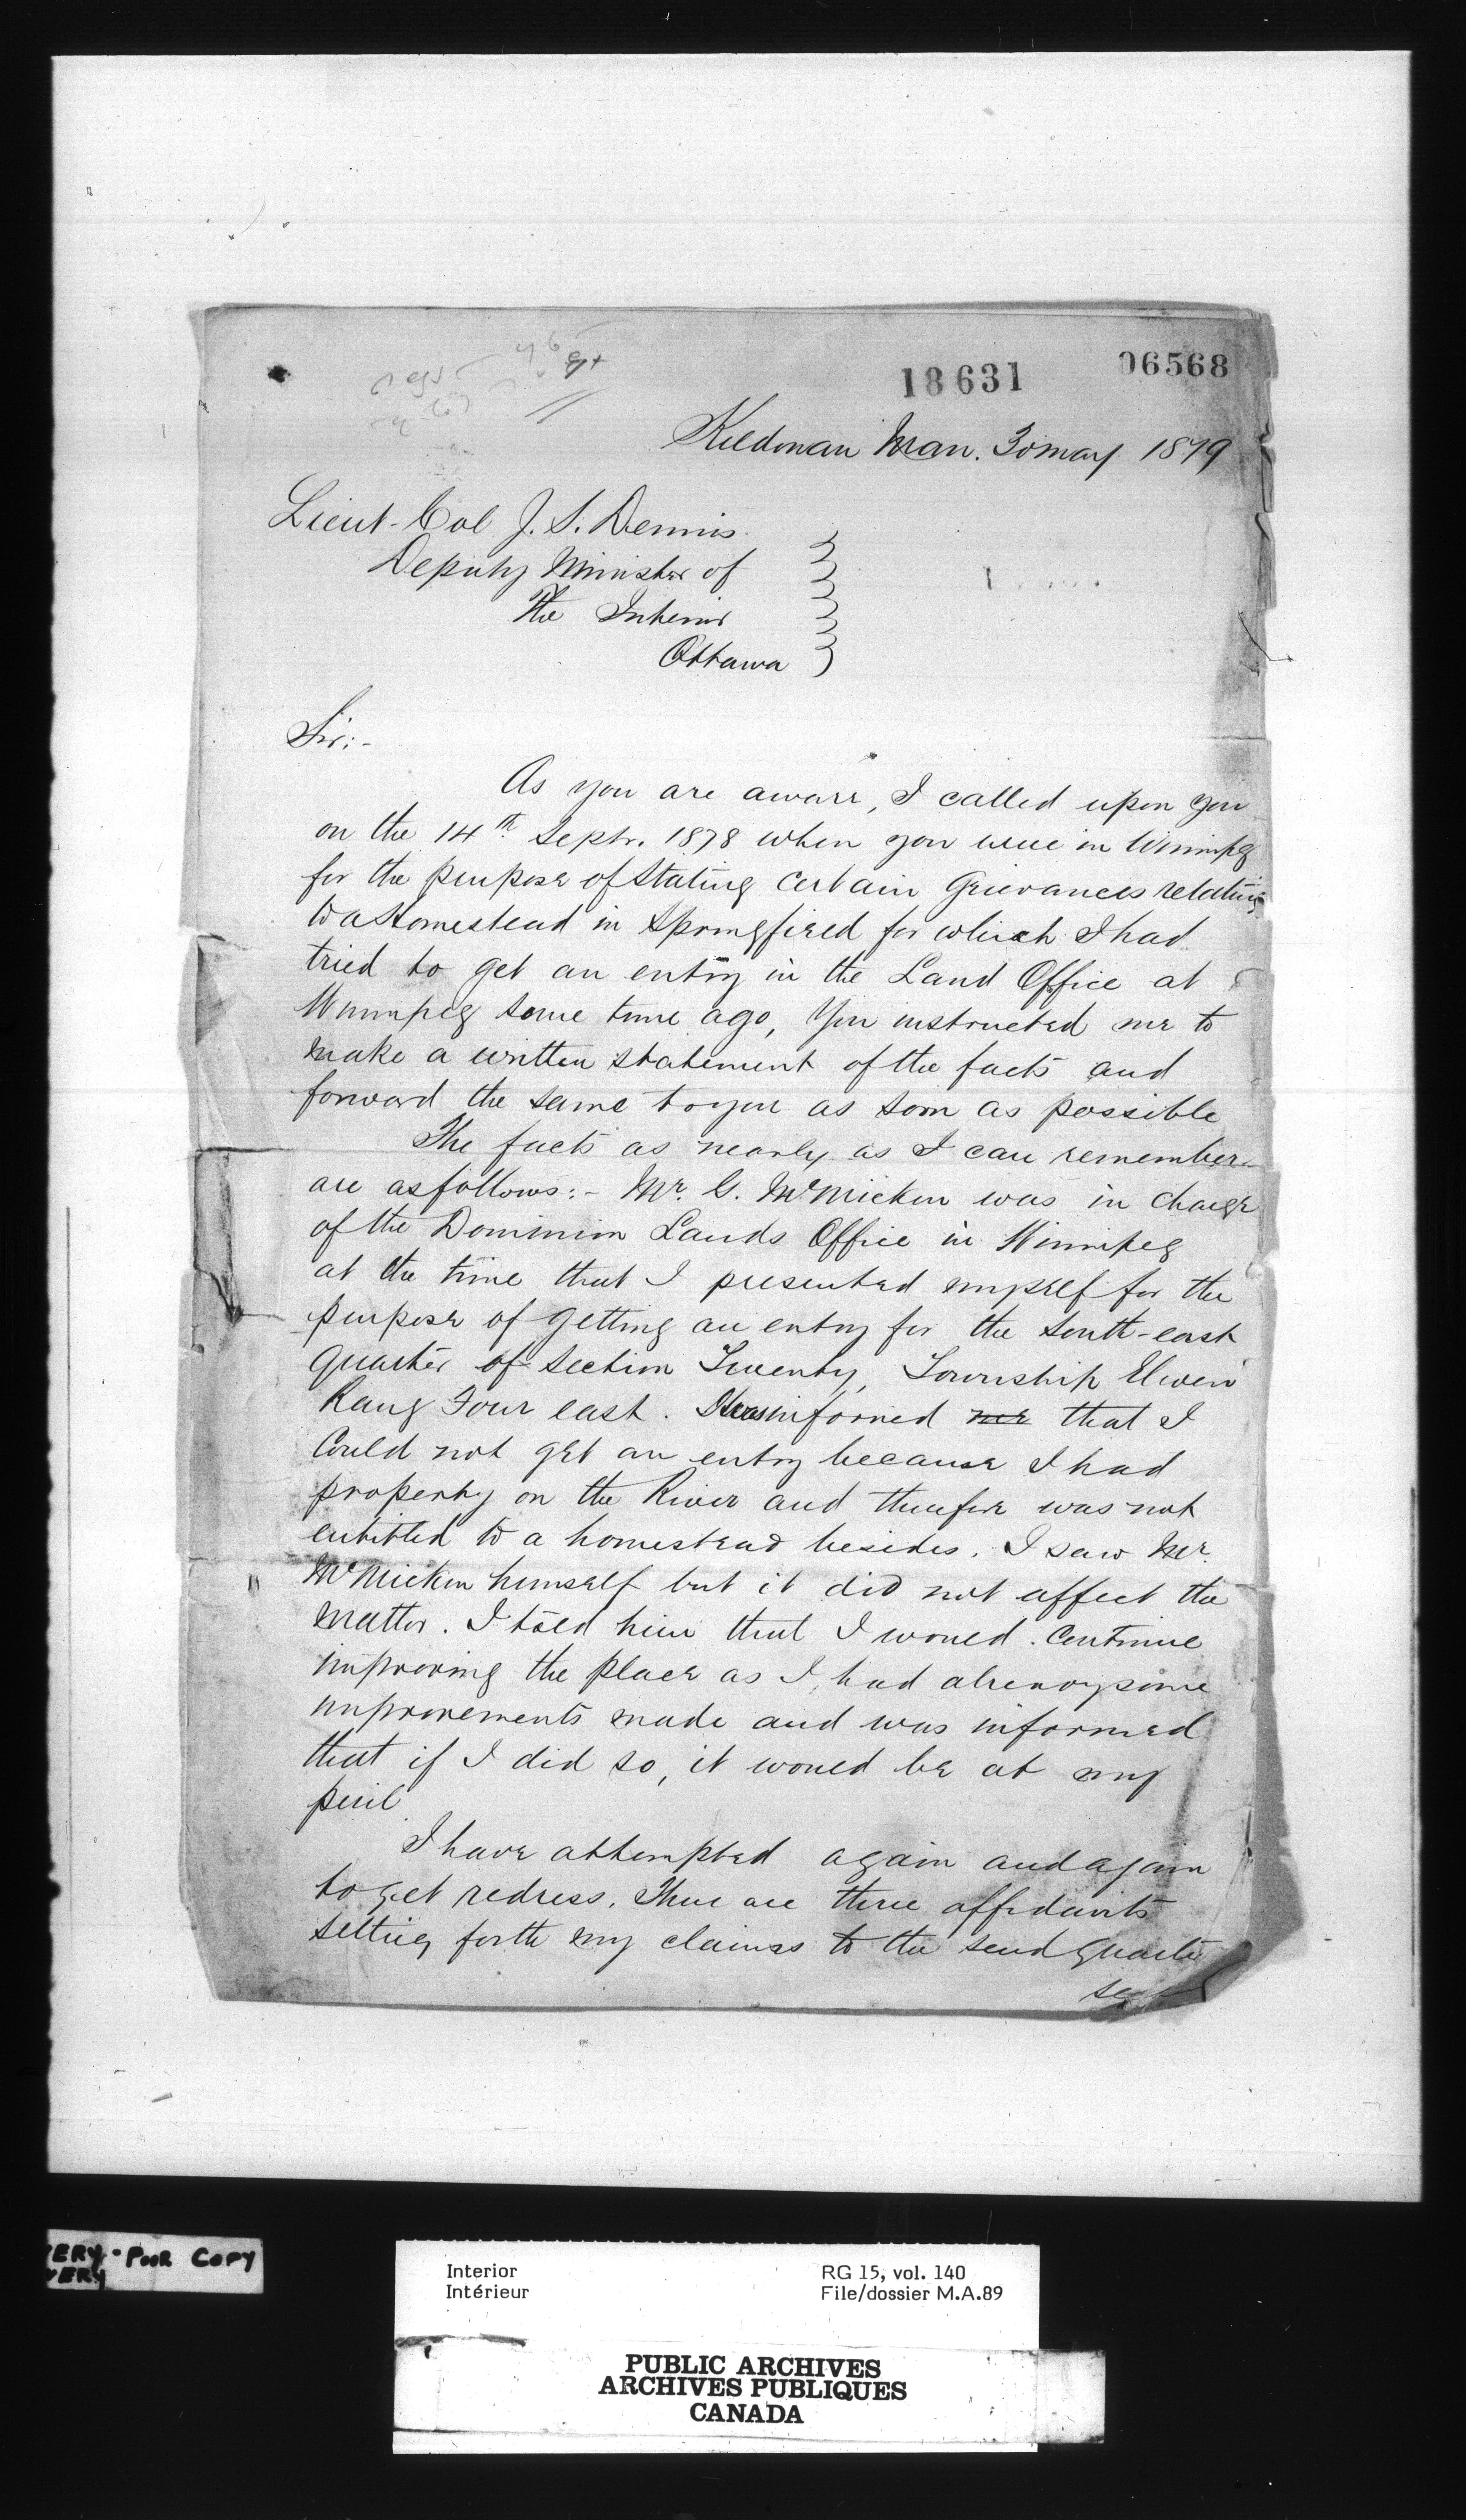 18631 06568
Kildonan Man. 30 May 1879
Lieut-Col J. S. Dennis
Deputy Minister of
The Interior
Ottawa
Sir:-
As you are aware, I called upon you
on the 14th Septr. 1878 when you were in Winnipeg
for the purpose of stating certain Grievances relating
to a Homestead in Springfield for which I had
tried to get an entry in the Land Office at
Winnipeg some time ago, You instructed me to
make a written statement of the facts and
forward the same to you as soon as possible
The facts as nearly as I can remember
are as follows:- Mr. G. McMicken was in charge
of the Dominion Lands Office in Winnipeg
at the time that I presented myself for the
purpose of getting an entry for the South-east
quarter of Section Twenty, Township Eleven
Rang Four east. I was informed me that I
could not get an entry because I had
property on the River and therefore was not
entitled to a homestead besides. I saw Mr.
McMicken himself but it did not affect the
matter. I told him that I would continue
improving the place as I had already some
improvements made and was informed
that if I did so, it would be at my
peril
I have attempted again and again
to get redress. There are three affidavits
setting forth my claims to the said quarter
VERY-POOR COPY
VERY
Interior RG 15, vol. 140
Intérieur File/dossier M.A.89
PUBLIC ARCHIVES
ARCHIVES PUBLIQUES
CANADA